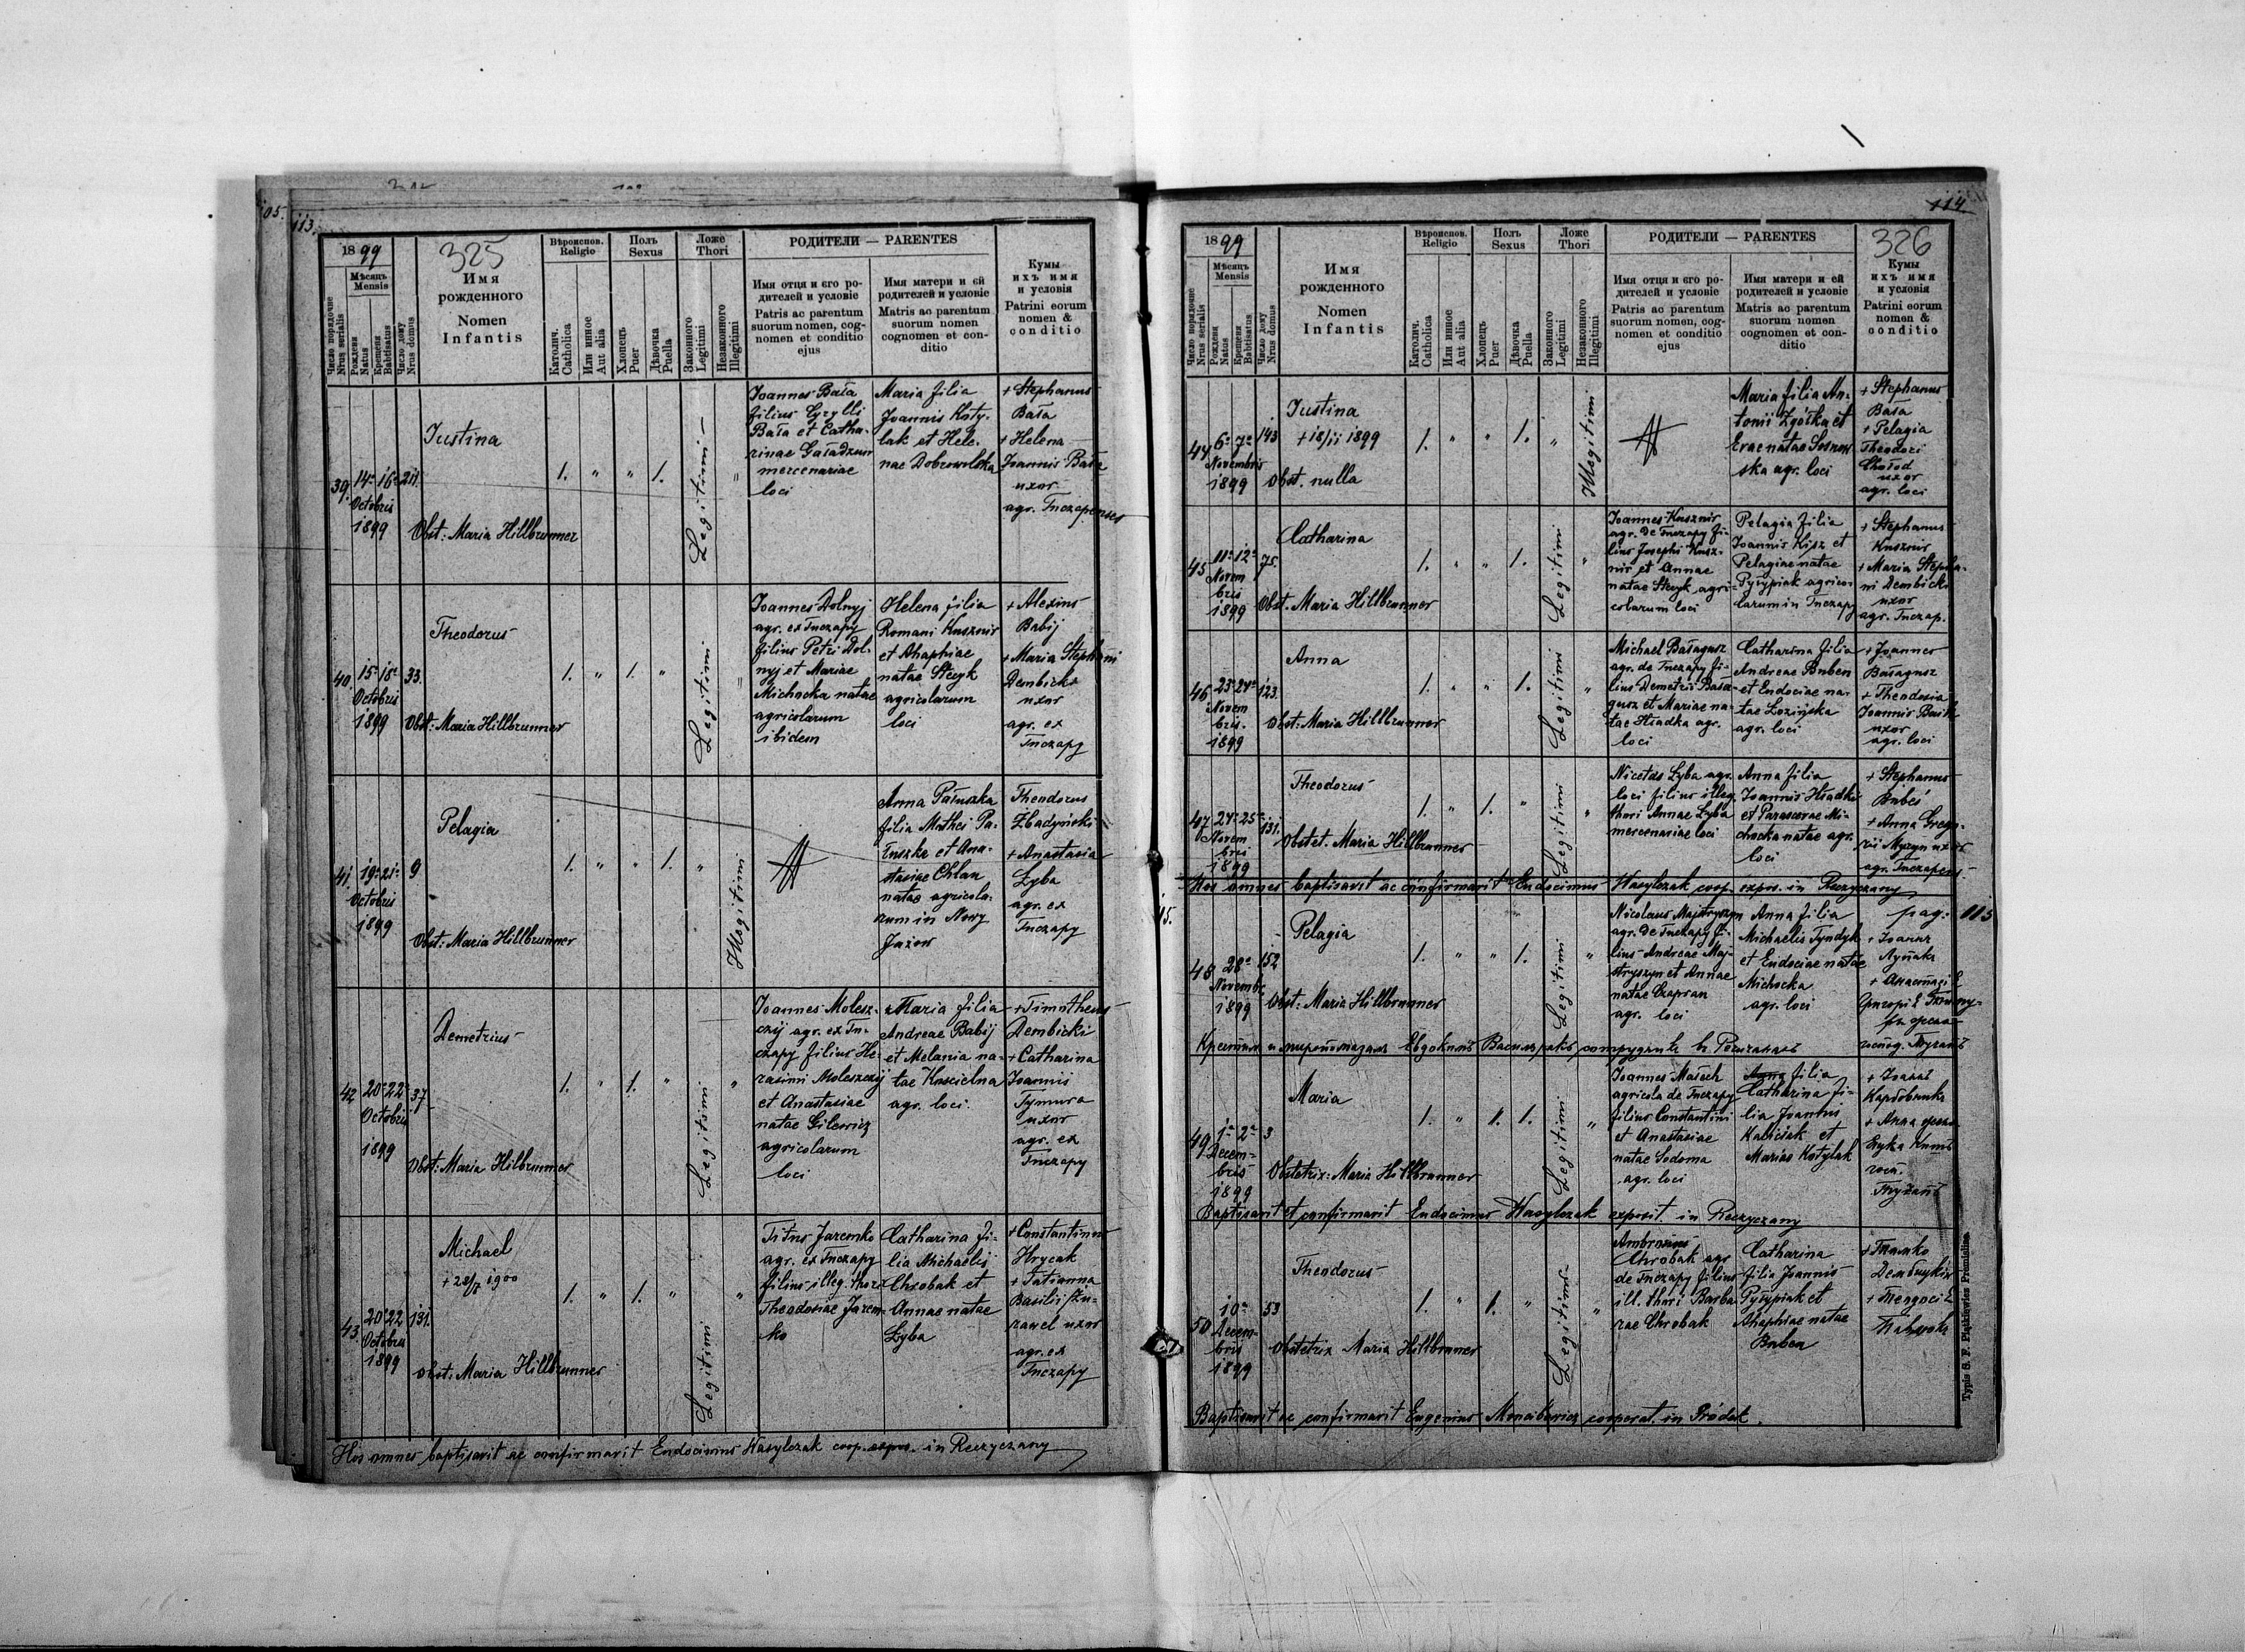 105.
113.
1899
325
Число порядочне
Nrus serialis
Мѣсяцъ
Mensis
Рожденя
Natus
Крещеня
Babtisatus
Число дому
Nrus domus
Имя
рожденного
Nomen
Infantis
Вѣроиспов.
Religio
Католич.
Catholica
Или инное
Aut alia
Полъ
Sexus
Хлопецъ
Puer
Дѣвочка
Puella
Ложе
Thori
Законного
Legitimi
Незаконного
Illegitimi
РОДИТЕЛИ — PARENTES
Имя отця и єго ро-
дителей и условіе
Patris ac parentum
suorum nomen, cog-
nomen et conditio
ejus
Имя матери и єй
родителей и условіе
Matris ac parentum
suorum nomen
cognomen et con-
ditio
Кумы
ихъ имя
и условія
Patrini eorum
nomen &
conditio
39.
14ª 16ª
Octobris
1899
211.
Justina
Obst: Maria Hillbrunner
1. " " 1.
Legitimi —
"
Joannes Bała
filius Cyrylli
Bała et Catha-
rinae Gaładzun
mercenariae
loci
Maria filia
Joannis Koty-
lak et Hele-
nae Dobrowolska
+ Stephanus
Bała
+ Helena
Joannis Bała
uxor
agr. Tuczapenses
40.
15ª 18ª
Octobris
1899
33.
Theodorus
Obst: Maria Hillbrunner
1. " 1. "
Legitimi
"
Joannes Dolnyj
agr. ex Tuczapy
filius Petri Dol-
nyj et Mariae
Michocka natae
agricolarum
ibidem
Helena filia
Romani Kusznir
et Ahaphiae
natae Stecyk
agricolarum
loci
+ Alexius
Babij
+ Maria Stephani
Dembicki
uxor
agr. ex
Tuczapy
41.
19ª 21ª
Octobris
1899
9
Pelagia
Obst: Maria Hillbrunner
1. " " 1. "
Illegitimi
Anna Pałuszka
filia Mathei Pa-
łuszke et Ana-
stasiae Chlan
natae agricola-
rum in Nowy
Jażow
Theodorus
Zbadyński
+ Anastasia
Łyba
agr. ex
Tuczapy
42
20ª 22ª
Octobris
1899
37.
Demetrius
Obst: Maria Hilbrunner
1. " 1. "
Legitimi
"
Joannes Molesz-
czij agr. ex Tu-
czapy filius He-
rasimi Moleszczij
et Anastasiae
natae Gilewicz
agricolarum
loci
Maria filia
Andreae Babij
et Melania na-
tae Kościelna
agr. loci.
+ Timotheus
Dembicki
+ Catharina
Joannis
Tymura
uxor
agr. ex
Tuczapy
43.
20 22
Octobris
1899
131.
Michael
+ 28/7 1900
Obst: Maria Hillbrunner
1. " 1. "
Legitimi
"
Titus Jaremko
agr. ex Tuczapy
filius illeg. thori
Theodosiae Jarem-
ko
Catharina fi-
lia Michaelis
Chrobak et
Annae natae
Łyba
+ Constantinus
Hrycak
+ Tatianna
Basilii
uxor
agr. ex
Tuczapy
Hos omnes baptisavit ac confirmavit Eudocimus Wasylczak coop. expos. in Reczyczany
114
1899
326
Число порядочне
Nrus serialis
Мѣсяцъ
Mensis
Рожденя
Natus
Крещеня
Babtisatus
Число дому
Nrus domus
Имя
рожденного
Nomen
Infantis
Вѣроиспов.
Religio
Католич.
Catholica
Или инное
Aut alia
Полъ
Sexus
Хлопецъ
Puer
Дѣвочка
Puella
Ложе
Thori
Законного
Legitimi
Незаконного
Illegitimi
РОДИТЕЛИ — PARENTES
Имя отця и єго ро-
дителей и условіе
Patris ac parentum
suorum nomen, cog-
nomen et conditio
ejus
Имя матери и єй
родителей и условіе
Matris ac parentum
suorum nomen
cognomen et con-
ditio
Кумы
ихъ имя
и условія
Patrini eorum
nomen &
conditio
44.
6ª 7ª
Novembris
1899
143
Justina
+ 18/11 1899
Obst. nulla
1. " " 1. "
Illegitimi
Maria filia An-
tonii Zgółka et
Evae natae Sosnow
ska agr. loci
+ Stephanus
Bała
+ Pelagia
Theodori
Chołod
uxor
agr. loci
45
11ª 12ª
Novem
bris
1899
75.
Catharina
Obst. Maria Hillbrunner
1. " " 1.
Legitimi
"
Joannes Kusznir
agr. de Tuczapy fi-
lius Josephi Kusz-
nir et Annae
natae Stecyk agri-
colarum loci
Pelagia filia
Joannis Kisz et
Pelagiae natae
Pyłypiak agrico-
larum in Tuczapy
+ Stephanus
Kusznir
+ Maria Stepha-
ni Dembicki
uxor
agr. Tuczap.
46
23ª 24ª
Novem
bris.
1899
123.
Anna
Obst: Maria Hillbrunner
1. " " 1.
Legitimi
"
Michael Bałagusz
agr. de Tuczapy fi-
lius Demetrii Bała-
gusz et Mariae na-
tae Hładka agr.
loci
Catharina filia
Andreae Buben
et Eudociae na-
tae Łozińska
agr. loci
+ Joannes
Bałagusz
+ Theodosia
Joannis
uxor
agr. loci
47
24ª 25ª
Novem
bris
1899
131.
Theodorus
Obstet. Maria Hillbrunner
1. " 1. "
Legitimi
"
Nicetas Łyba agr.
loci filius illeg.
thori Annae Łyba
mercenariae loci
Anna filia
Joannis Hładki
et Parascevae Mi-
chocka natae agr.
loci
+ Stephanus
Bubeś
+ Anna Grego-
rii Myzyn uxor
agr. Tuczapens.
Hos omnes baptisavit ac confirmavit Eudocimus Wasylczak coop. expos. in Reczyczany
115.
48
28ª
Novemb.
1899
152
Pelagia
Obst: Maria Hillbrunner
1. " " 1.
Legitimi
"
Nicolaus Majstryszyn
agr. de Tuczapy fi-
lius Andreae Maj-
stryszyn et Annae
natae Czapran
agr. loci
Anna filia
Michaelis Tyndyk
et Eudociae natae
Michocka
agr. loci
pag: 115
+ Іоаннъ
Лупакъ
+ Анастасіѣ
Григоріѣ
Крестилъ и миропомазалъ Евдокимъ Василчакъ сотрудникъ въ Речичанахъ
49
1ª 2ª
Decem-
bris
1899
3
Maria
Obstetrix: Maria Hillbrunner
1. " 1. 1.
Legitimi
"
Joannes Małech
agricola de Tuczapy
filius Constantini
et Anastasiae
natae Sodoma
agr. loci
Anna filia
Catharina fi-
lia Joannis
Kabiciak et
Mariae Kotylak
+ Іоаннъ
+ Анна
Baptisavit et confirmavit Eudocimus Wasylczak exposit. in Reczyczany
50
10ª
Decem-
bris
1899
53
Theodorus
Obstetrix Maria Hillbrunner
1. " 1. "
Legitimi
"
Ambrosius
Chrobak agr.
de Tuczapy filius
ill. thori Barba-
rae Chrobak
Catharina
filia Joannis
Pyłypiak et
Ahaphiae natae
Buben
+ Тимко
Дембицкій
+ Теодосіѣ
Baptisavit ac confirmavit Eugenius cooperat. in Gródek.
Typis S. F. Piątkiewicz Przemiślіae.